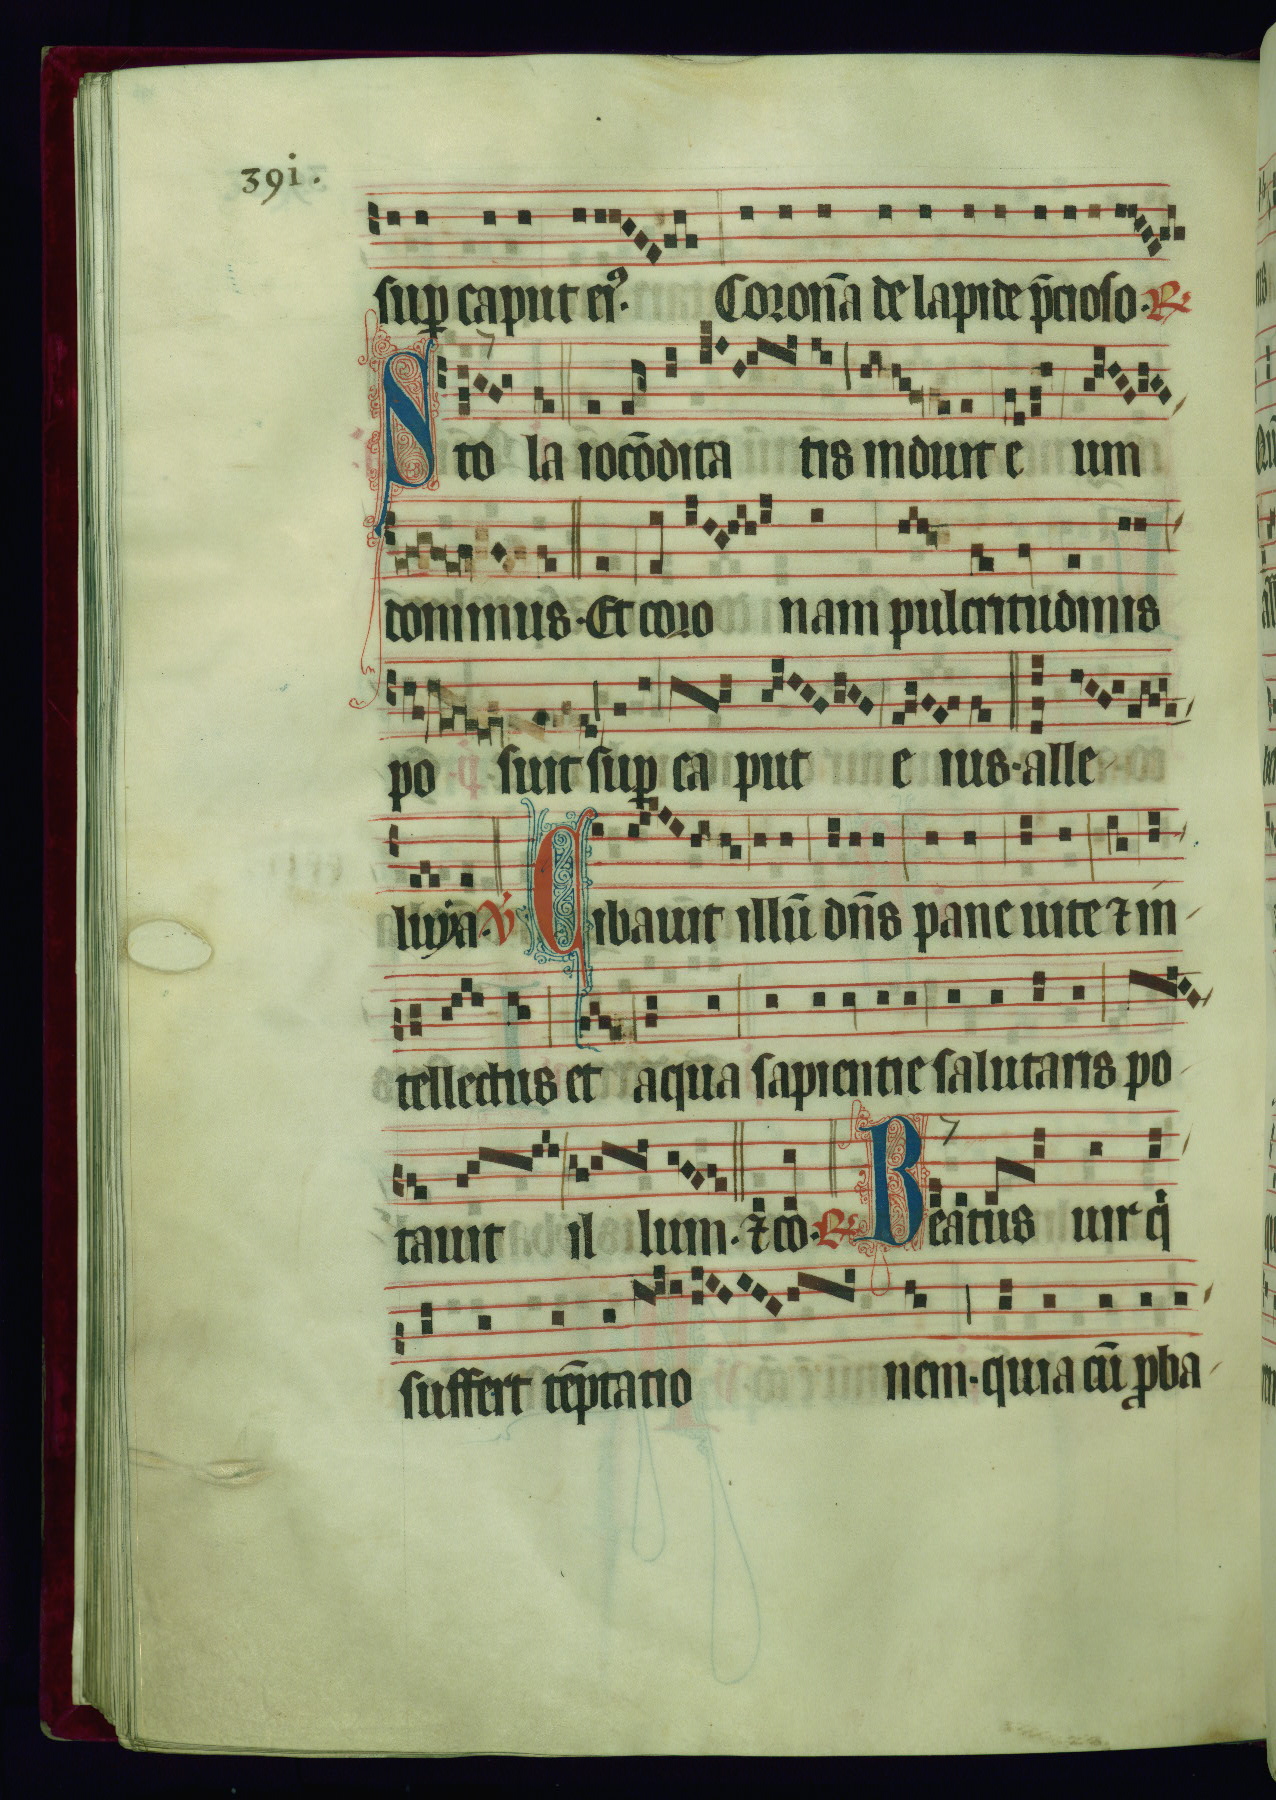 39i.
sup̲ caput ei⁹. Coron̄a de lapide p̄cioso. ℟
Sto la iocōdita tis induit e um
dominus. Et coro nam pulcritudinis
po suit sup̲ ca put e ius. alle
luya. ℣ Cibauit illū dn̄s pane uite ⁊ in
tellectus et aqua sapientie salutaris po
tauit il lum. ⁊ cō. ℟ Beatus uir q̇
suffert tēptatio nem. quia cū ꝓba